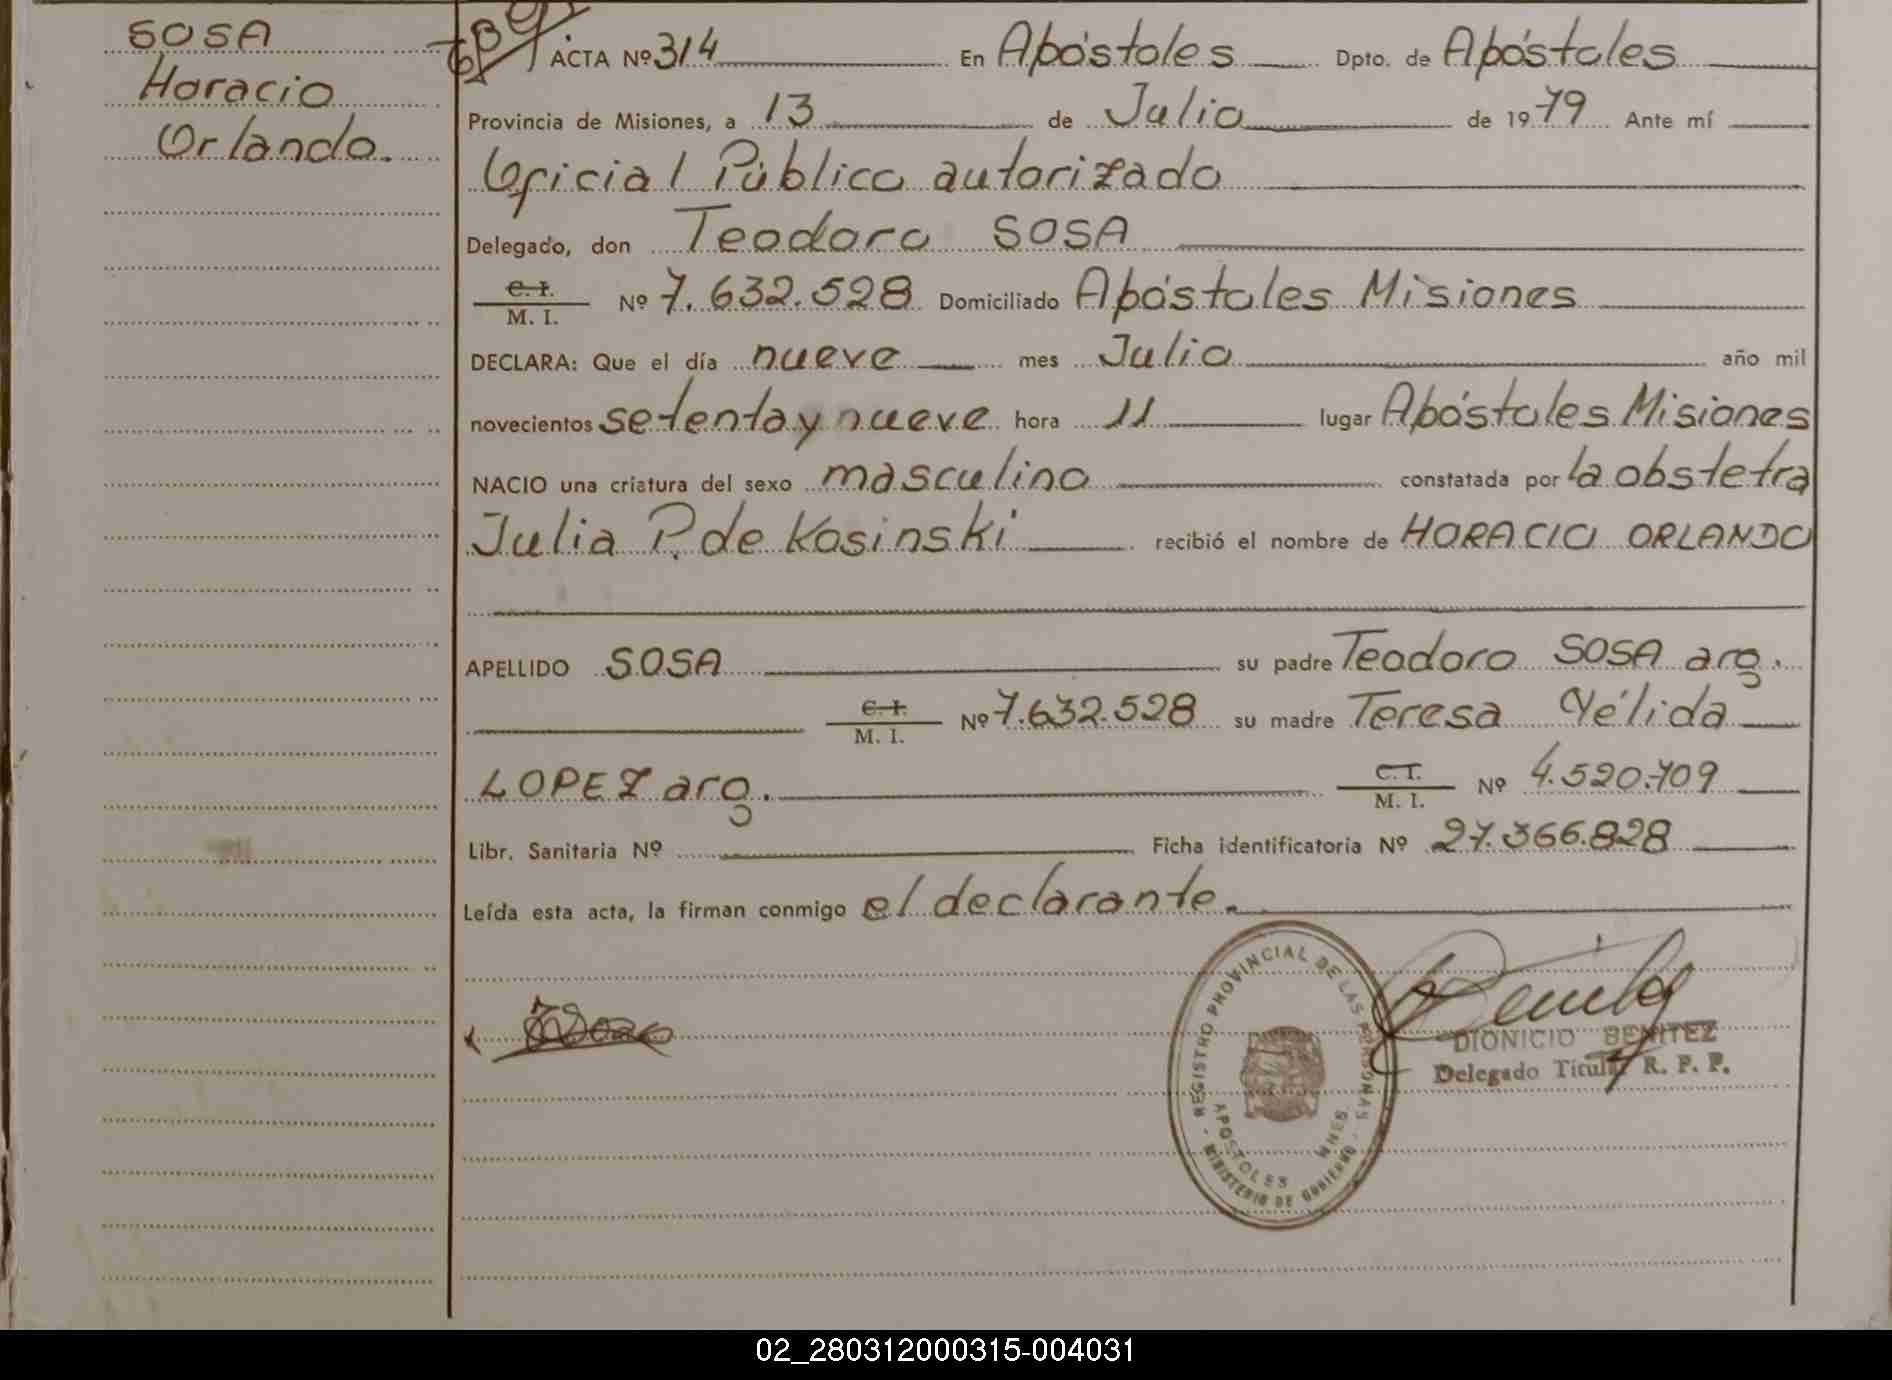 SOSA
Horacio
Orlando.
ACTA Nº 314 En Apóstoles Dpto. de Apóstoles
Provincia de Misiones, a 13 de Julio de 1979 Ante mí
Oficial Público autorizado
Delegado, don Teodoro SOSA
C. I.
M. I. Nº 7.632.528 Domiciliado Apóstoles Misiones
DECLARA: Que el día nueve mes Julio año mil
novecientos setenta y nueve hora 11 lugar Apóstoles Misiones
NACIO una criatura del sexo masculino constatada por la obstetra
Julia P. de Kosinski recibió el nombre de HORACIO ORLANDO
APELLIDO SOSA su padre Teodoro SOSA arg.
C. I.
M. I. Nº 7.632.528 su madre Teresa Yélida
LOPEZ arg. C. I.
M. I. Nº 4.520.709
Libr. Sanitaria Nº Ficha identificatoria Nº 27.366.828
Leída esta acta, la firman conmigo el declarante.
REGISTRO PROVINCIAL DE LAS PERSONAS
APOSTOLES MNES
MINISTERIO DE GOBIERNO
DIONICIO BENITEZ
Delegado Titular R. P. P.
02_280312000315-004031